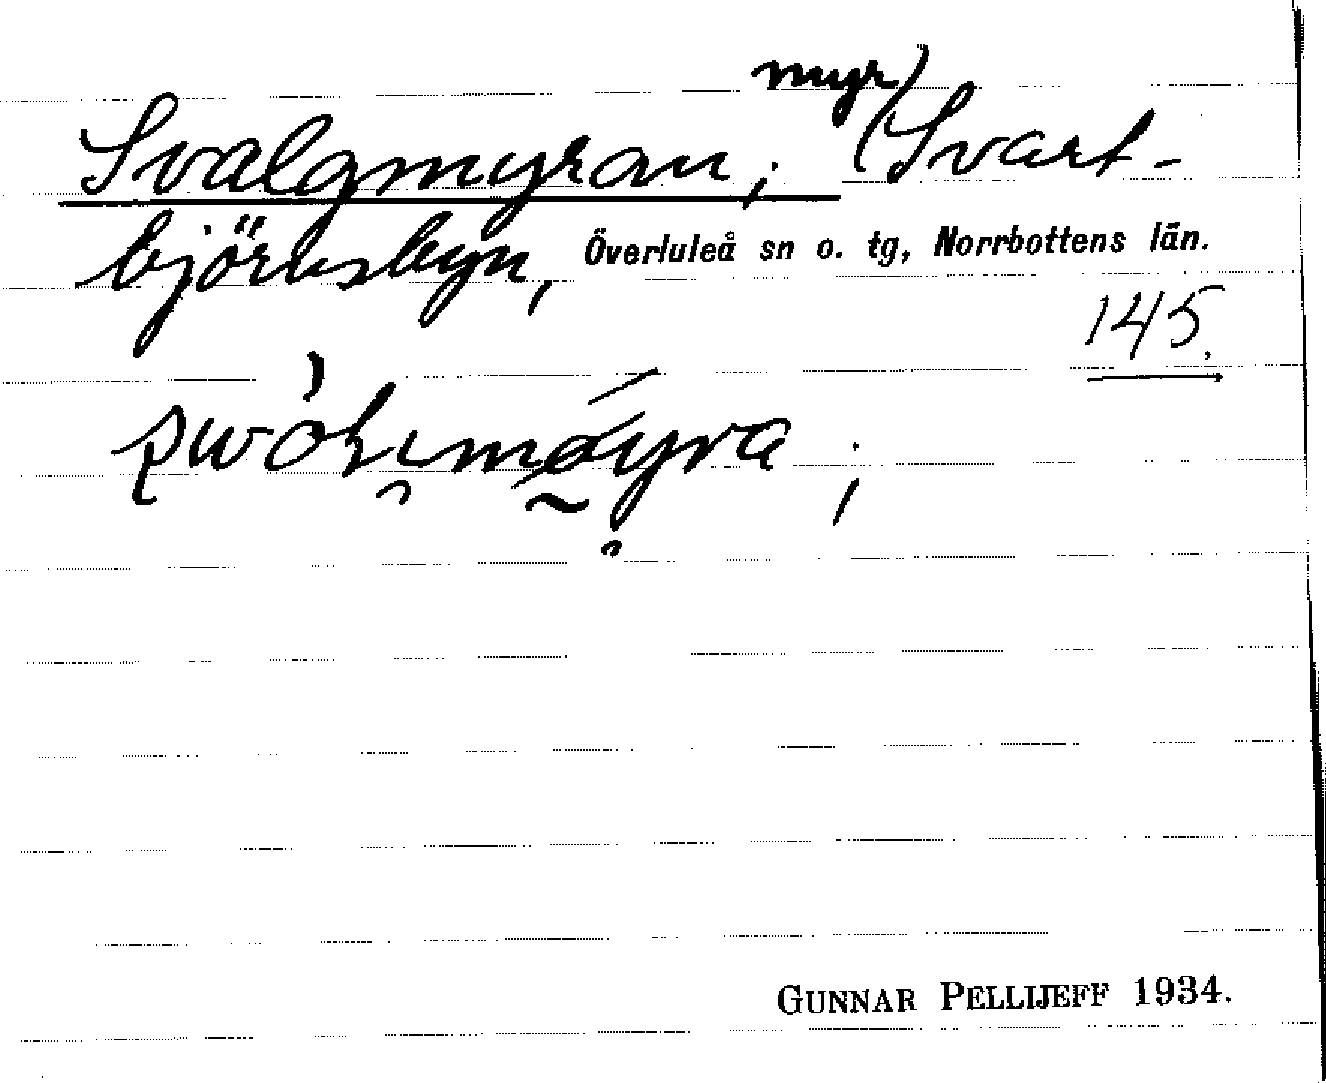 myr)
Svalgmyran; (Svart-
björnsbyn, Överluleå sn o. tg, Norrbottens län.
145.
GUNNAR PELLIJEFF 1934.